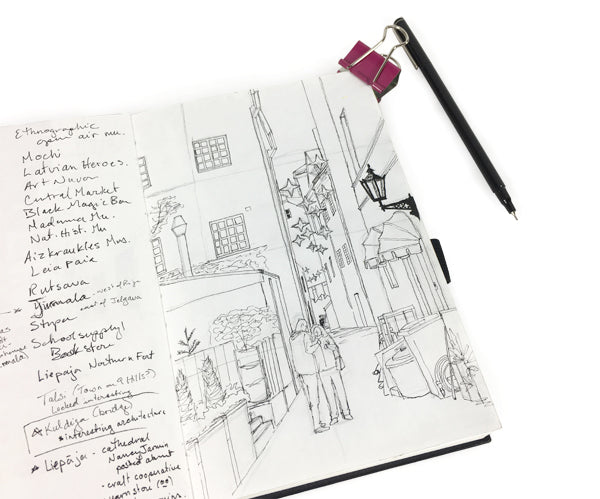 Ethnographic
open air mu.
Mochi
Latvian Heroes.
Art Nuvo
Central Market
Black Magic Bar
Madonna Mu.
Nat. Hist. Mu
Aizkraukles Mus.
Rutsava
Jūrmala - west of
east of Jelgava
School supply/
Book store
Liepaja Northern Fort
Talsi (Town on 9 Hills?)
Looked interesting
Kuldiga (bridge)
* interesting architecture
* Liepāja - cathedral
Nancy
posted about
- craft cooperative
yarn store